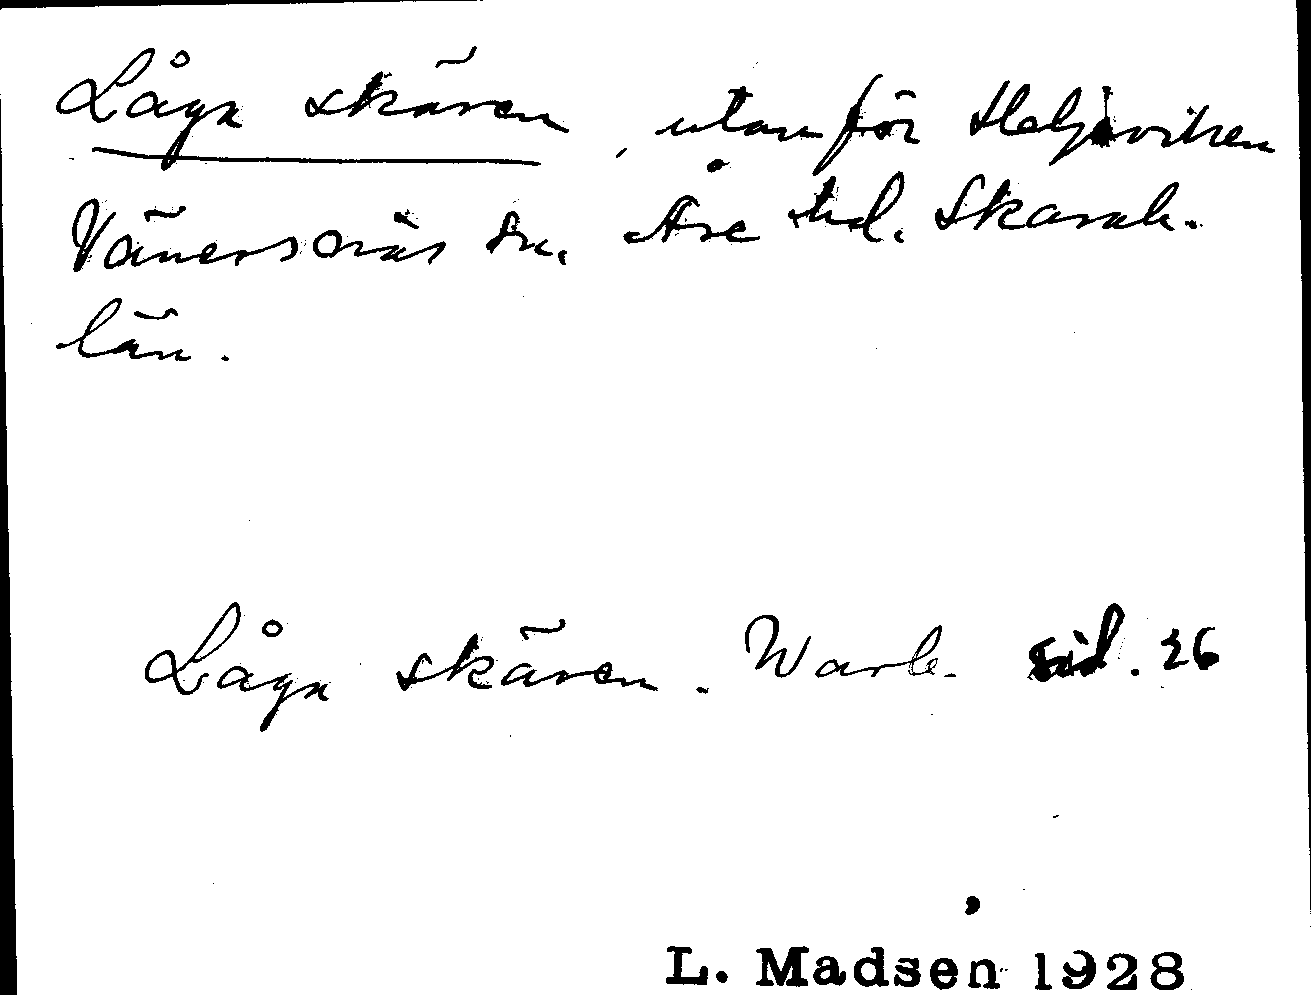 Låga skären, utanför Heljeviken
Vänersnäs sn. Åse hd. Skarab.
län.
Låga skären. Warb. sid. 26
L. Madsen 1928